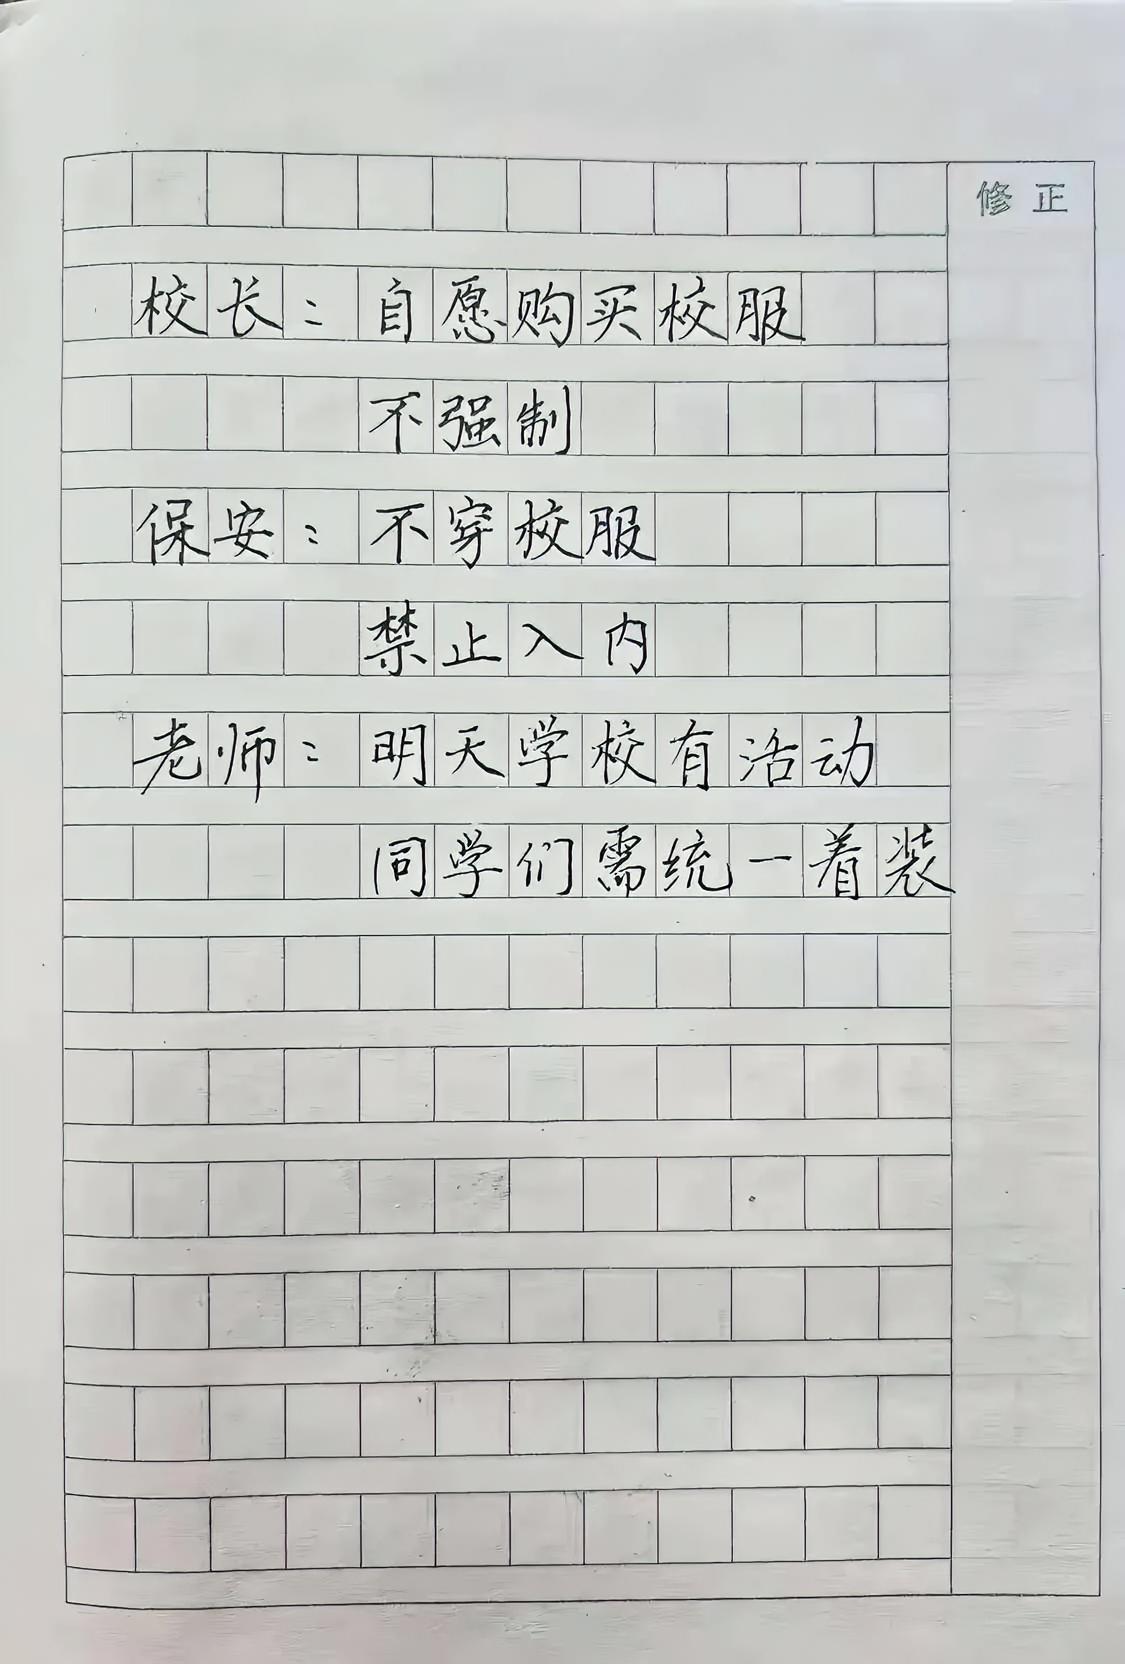 修正
校长：自愿购买校服
不强制
保安：不穿校服
禁止入内
老师：明天学校有活动
同学们需统一着装